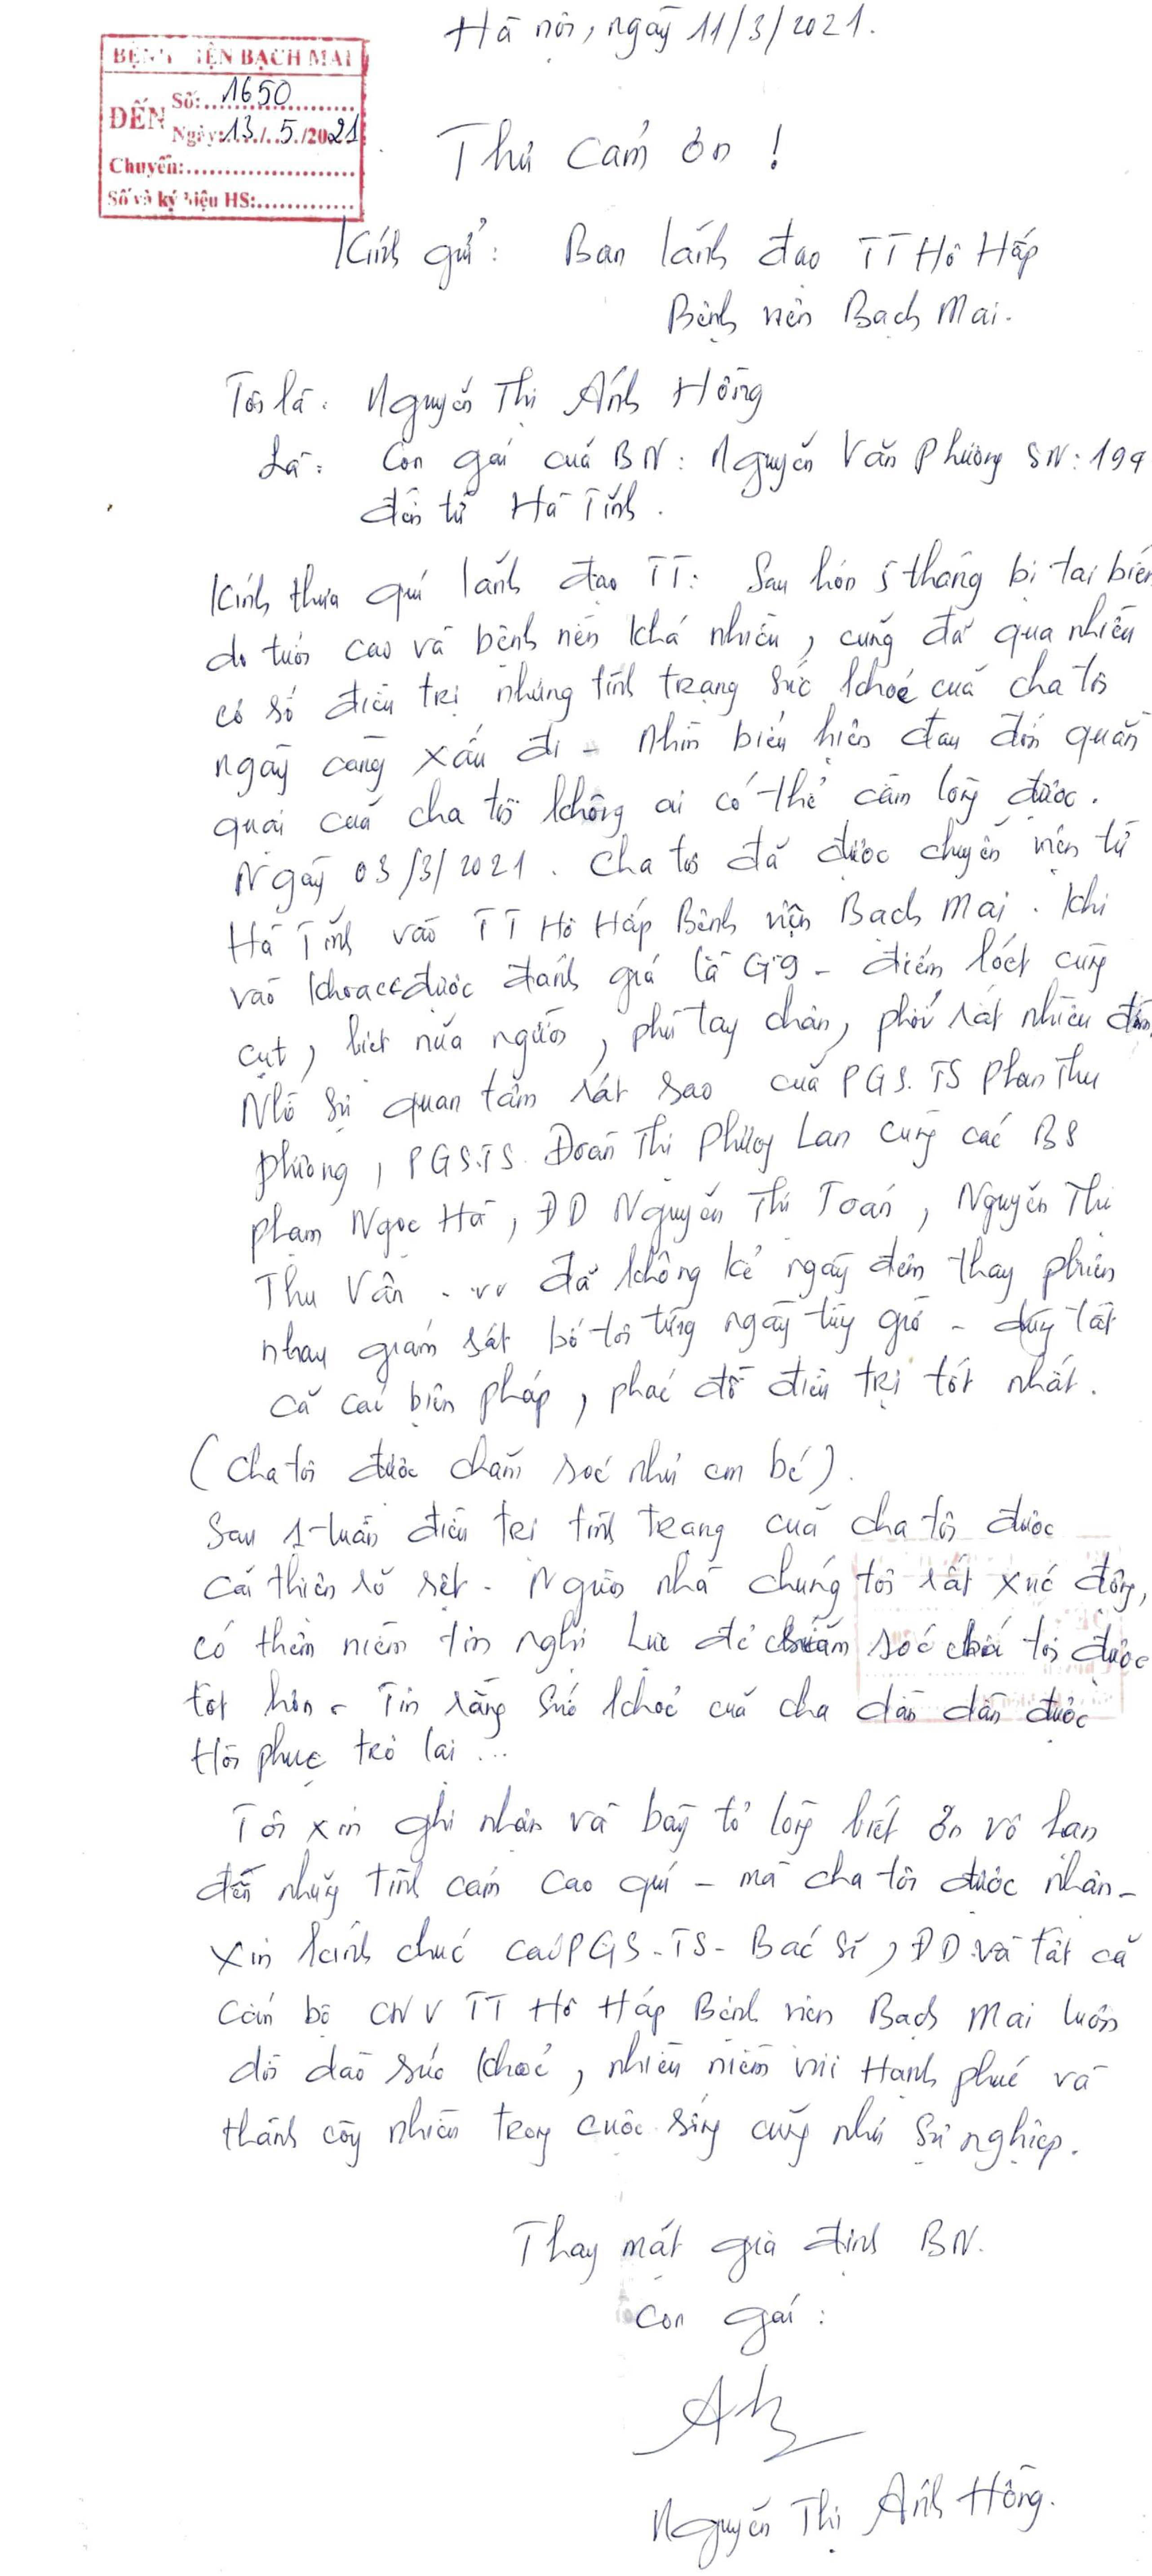 Hà nội, ngày 11/3/2021.
BỆNH VIỆN BẠCH MAI
ĐẾN
Số: 1650
Ngày: 13/5/2021
Chuyển:
Số và ký hiệu HS:
Thư cảm ơn !
Kính gửi: Ban lãnh đạo TT Hô Hấp
Bệnh viện Bạch Mai.
Tôi là: Nguyễn Thị Ánh Hồng
Là: Con gái của BN: Nguyễn Văn Phương SN: 194
đến từ Hà Tĩnh.
Kính thưa quí lãnh đạo TT: Sau hơn 5 tháng bị tai biến
do tuổi cao và bệnh nền khá nhiều, cũng đã qua nhiều
cơ sở điều trị nhưng tình trạng sức khoẻ của cha tôi
ngày càng xấu đi - nhìn biểu hiện đau đớn quằn
quại của cha tôi không ai có thể cầm lòng được.
Ngày 03/3/2021. Cha tôi đã được chuyển viện từ
Hà Tĩnh vào TT Hô Hấp Bệnh viện Bạch Mai. Khi
vào khoa được đánh giá là - điểm loét cùng
cụt, liệt nửa người, phù tay chân, phổi rất nhiều đờm
Nhờ sự quan tâm sát sao của PGS.TS Phan Thu
Phương, PGS.TS. Đoàn Thị Phương Lan cùng các BS
Phạm Ngọc Hà, ĐD Nguyễn Thị Toán, Nguyễn Thị
Thu Vân . vv đã không kể ngày đêm thay phiên
nhau giám sát bố tôi từng ngày từng giờ - dùng tất
cả các biện pháp, phác đồ điều trị tốt nhất.
(Cha tôi được chăm sóc như em bé).
Sau 1 tuần điều trị tình trạng của cha tôi được
cải thiện rõ rệt. Người nhà chúng tôi rất xúc động,
có thêm niềm tin nghị lực để chăm sóc tôi được
tốt hơn - Tin rằng sức khoẻ của cha dần dần được
Hồi phục trở lại ...
Tôi xin ghi nhận và bày tỏ lòng biết ơn vô hạn
đến những tình cảm cao quí - mà cha tôi được nhận -
Xin kính chúc các PGS - TS - Bác sĩ, ĐD và tất cả
Cán bộ CNV TT Hô Hấp Bệnh viện Bạch Mai luôn
dồi dào sức khoẻ, nhiều niềm vui Hạnh phúc và
thành công nhiều trong cuộc sống cũng như sự nghiệp.
Thay mặt gia đình BN.
Con gái:
Nguyễn Thị Ánh Hồng.